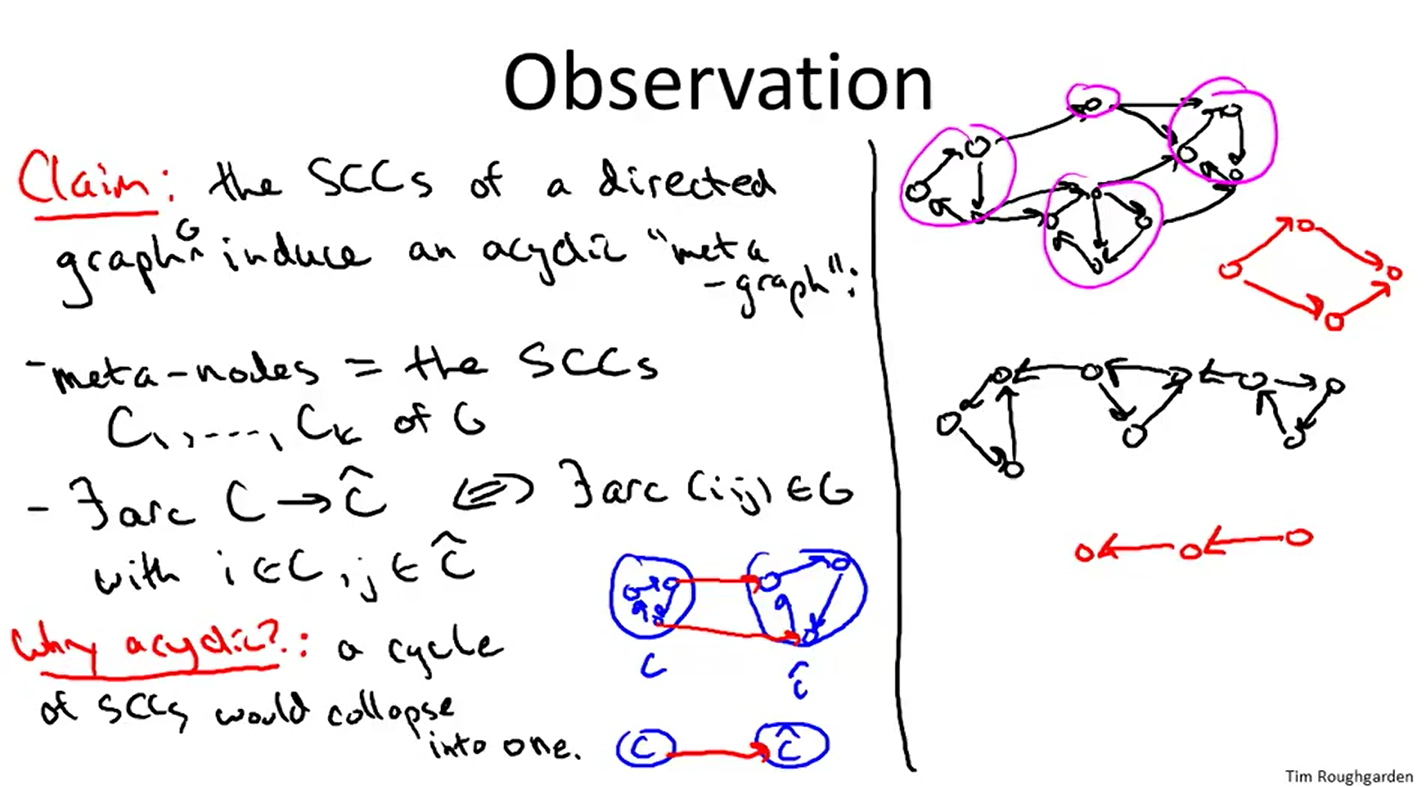 Observation
Claim: the SCCs of a directed
graph G induce an acyclic "meta
-graph":
-meta-nodes = the SCCs
C₁,----, Cₖ of G
- ∃ arc C → Ĉ ⇔ ∃ arc (i,j) ∈ G
with i ∈ C, j ∈ Ĉ
Why acyclic?: a cycle
of SCCs would collapse
into one.
C Ĉ
C Ĉ
Tim Roughgarden